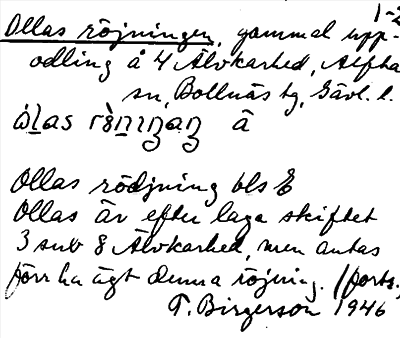 1-2
Ollas röjningen, gammal upp-
odling å 4 Älvkarhed, Alfta
sn, Bollnäs tg, Gävl. l.
Ollas rödjning bls E
Ollas är efter laga skiftet
3 sub 8 Älvkarhed, men antas
förr ha ägt denna röjning. (forts.)
T. Birgerson 1946